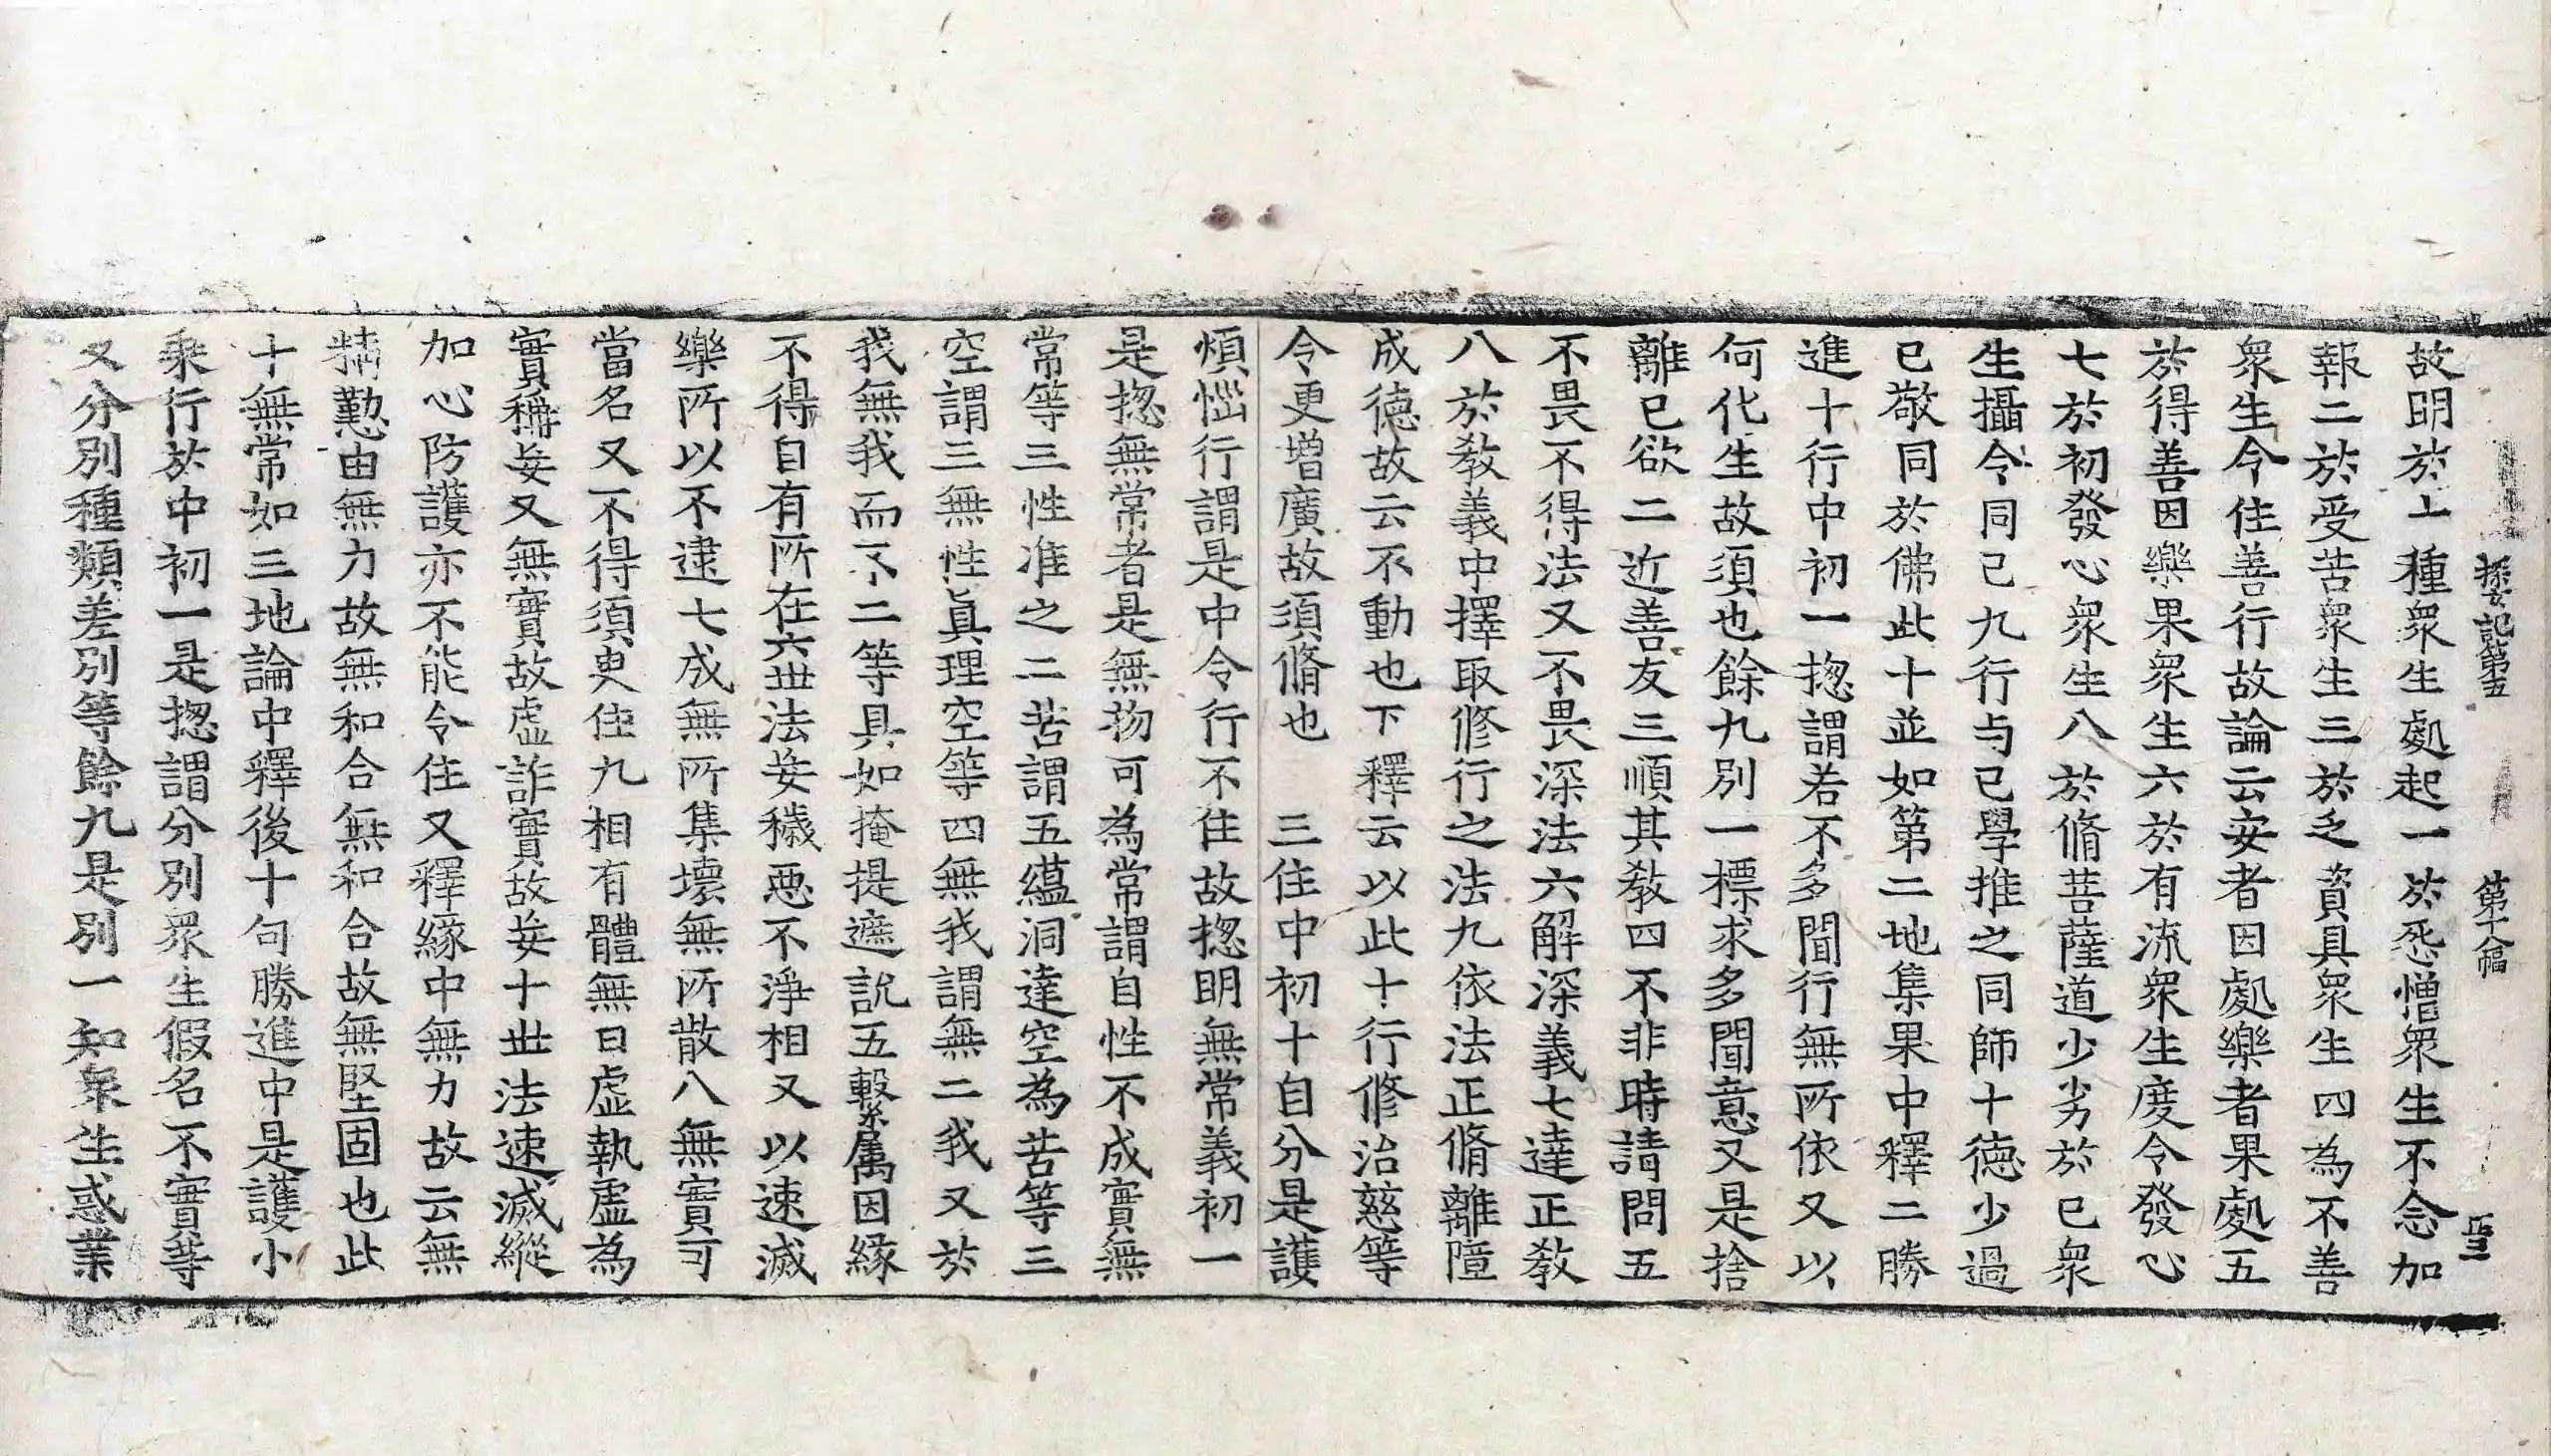 探玄記第五　第十八幅
故明於上種衆生處起一於怨憎衆生不念加
報二於受苦衆生三於乏資具衆生四為不善
衆生令住善行故論云安者因處樂者果處五
於得善因樂果衆生六於有流衆生度令發心
七於初發心衆生八於脩菩薩道少劣於已衆
生攝令同已九行与已學推之同師十德少過
已敬同於佛此十並如第二地集果中釋二勝
進十行中初一揔謂若不多聞行無所依又以
何化生故須也餘九別一標求多聞意又是捨
離已欲二近善友三順其教四不非時請問五
不畏不得法又不畏深法六解深義七達正教
八於教義中擇取修行之法九依法正脩離障
成德故云不動也下釋云以此十行修治慈等
令更增廣故須脩也　三住中初十自分是護
煩惱行謂是中令行不住故揔明無常義初一
是揔無常者是無物可為常謂自性不成實無
常等三性准之二苦謂五蘊洞達空為苦等三
空謂三無性真理空等四無我謂無二我又於
我無我而不二等具如掩提遮說五繫属因緣
不得自有所在六世法妄穢惡不淨相又以速滅
樂所以不逮七成無所集壞無所散八無實可
當名又不得須臾住九相有體無曰虛執虛為
實稱妄又無實故虛詐實故妄十世法速滅縱
加心防護亦不能令住又釋緣中無力故云無
精勤由無力故無和合無和合故無堅固也此
十無常如三地論中釋後十句勝進中是護小
乘行於中初一是揔謂分別衆生假名不實等
又分別種類差別等餘九是別一知衆生惑業